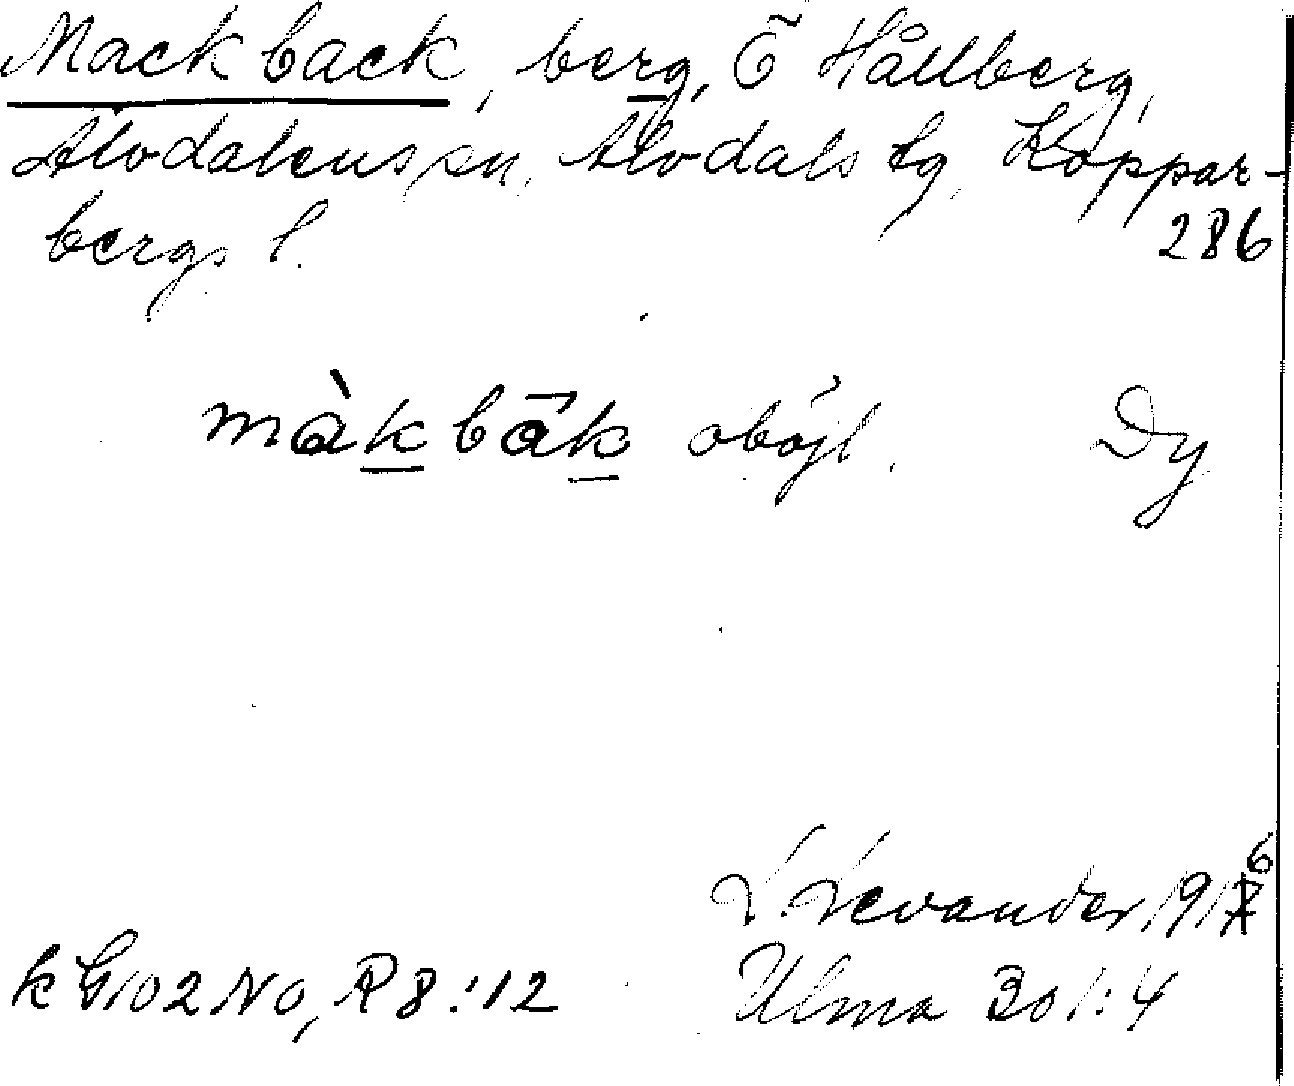 Mackback, berg, Ö Hållberg,
Älvdalens sn, Älvdals tg, Koppar-
bergs l.
286
màkbā̀k oböjl. Dy
L. Levander 1916
k G102 NO, R8:12 Ulma 301:4